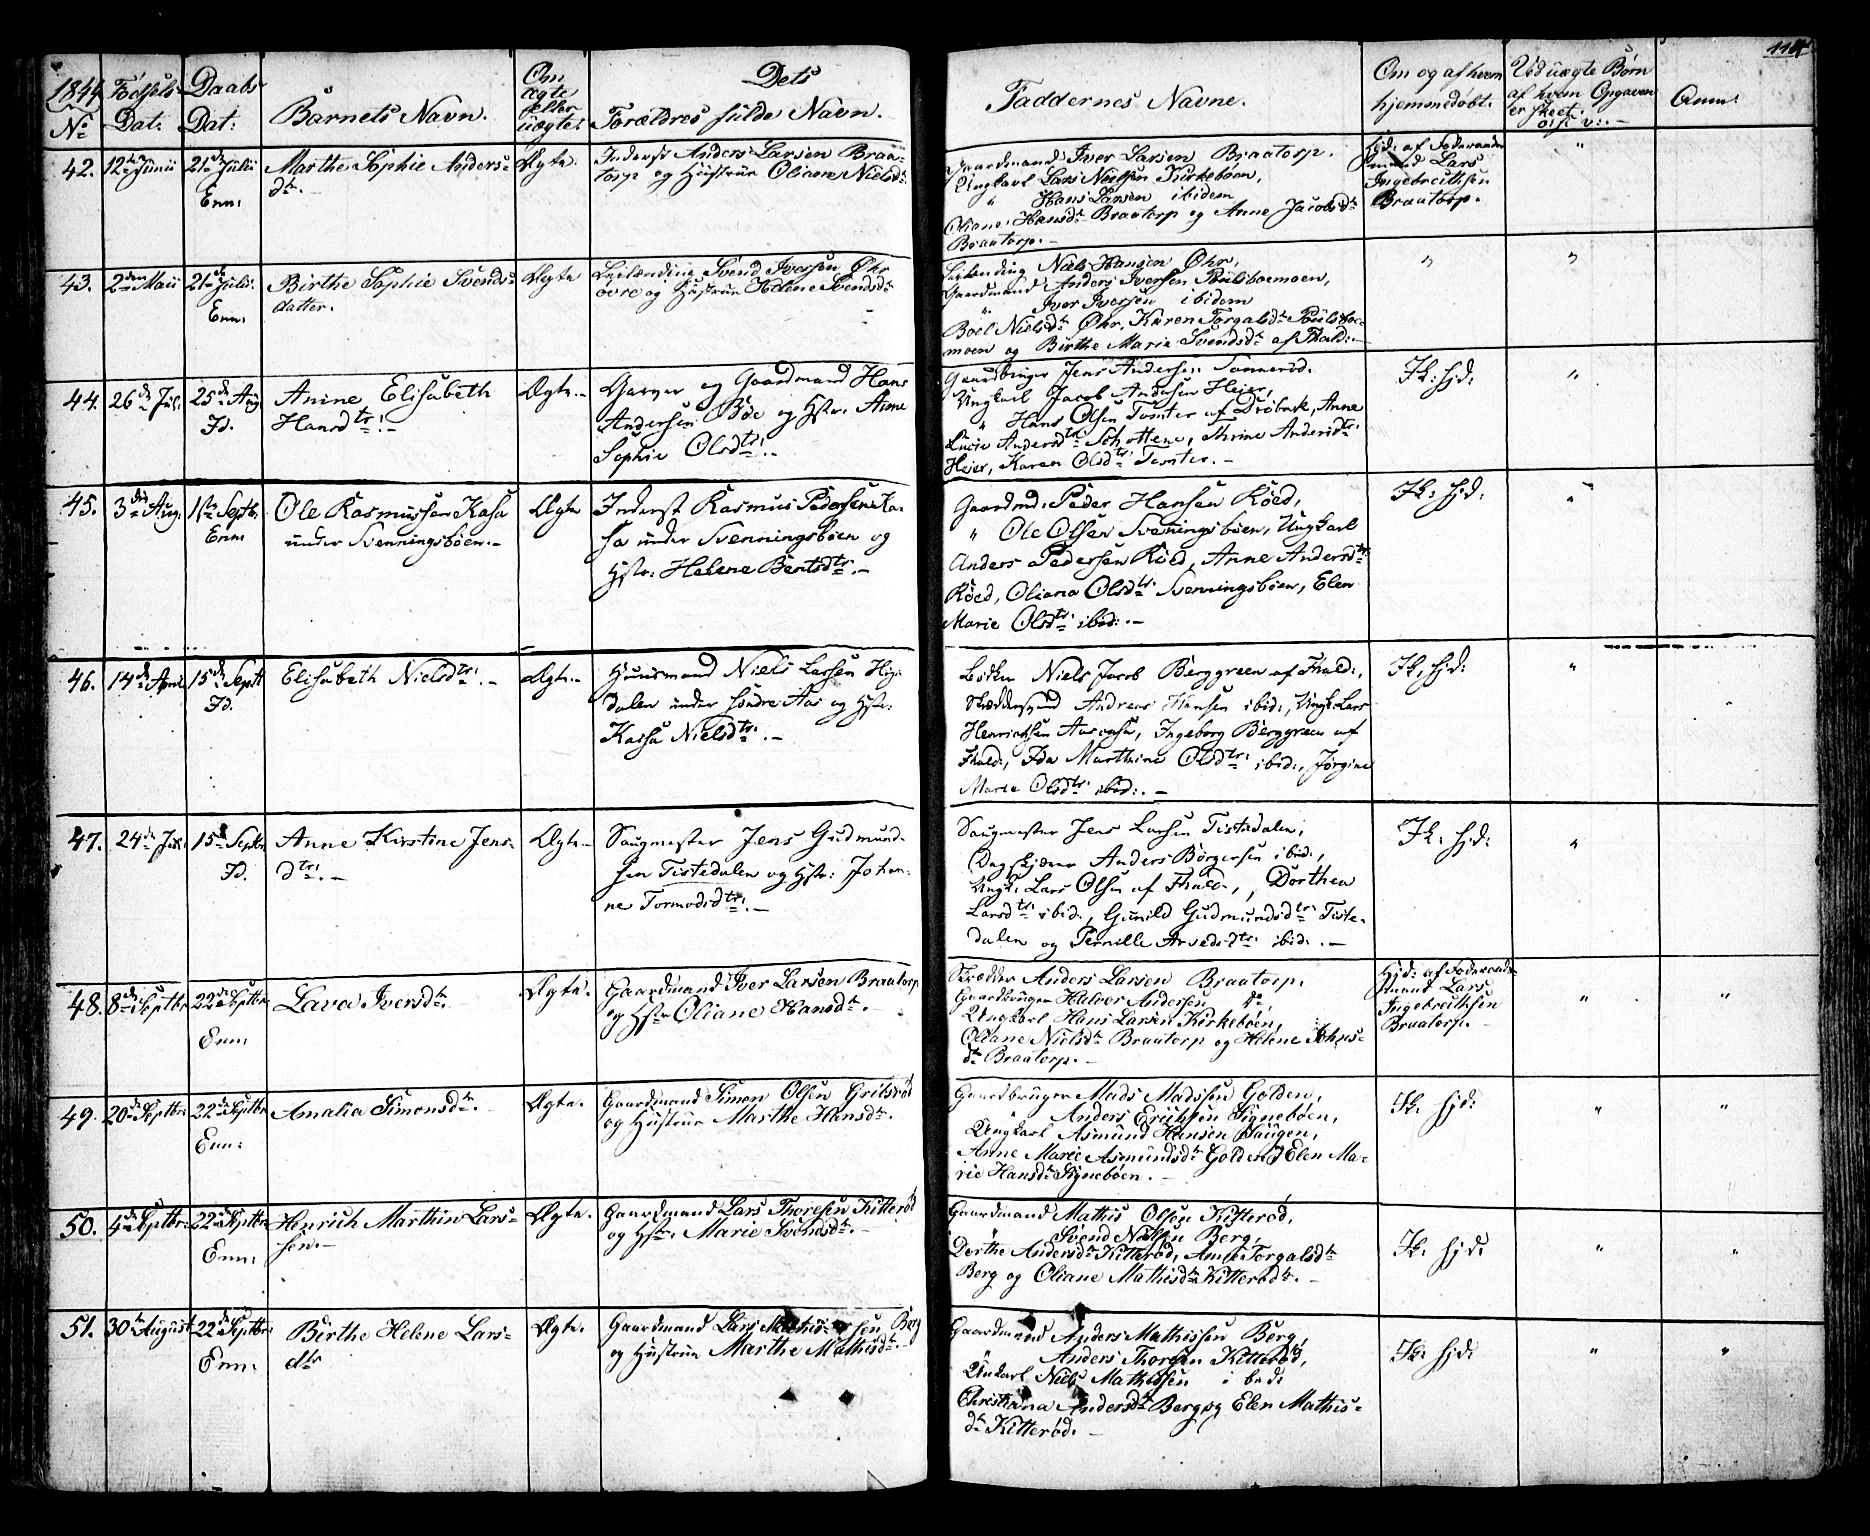 114
1844
No
Fødsels
Dat:
Daabs
Dat:
Barnets Navn.
Om
ægte
eller
uægte:
Dets
Forældres fulde Navn.
Faddernes Navne.
Om og af hvem
hjemmedøbt.
Ved uægte Børn
af hvem Opgaven
er skeet.
Anm:
42. 12te Junii 21de Julii
Enn:
Marthe Sophie Anders-
dtr.
Ægte.
Inderst Anders Larsen Braa-
torp og Hustrue Oliane Nielsdtr
Gaardmand Iver Larsen Braatorp.
Ungkarl Lars Nielsen Kirkebøen,
" Hans Larsen ibidem
Oliane Hansdtr Braatorp og Anne Jacobsdtr
Braatorp. -
Hjd: af Føderaads
mand Lars
Ingebrethsen
Braatorp.
"
43. 2den Maii 21de Julii.
Enn:
Birthe Sophie Svends-
datter.
Ægte
Leilænding Svend Iversen Øhr
øvre og Hustrue Helene Svendsdtr
Leilending Niels Hansen Øhr,
Gaardmand Anders Iversen Poulsboemoen,
" Iver Iversen ibidem
Boel Nielsdtr Øhr, Karen Torgalsdtr Poulsboe-
moen og Birthe Marie Svendsdtr af Fhald: -
" "
44. 26de Jul: 25de Aug
Id.
Anine Elisabeth
Hansdtr: -
Ægte. -
Garver og Gaardmand Hans
Andersen Bøe og Hstr: Anne
Sophie Olsdtr: -
Gaardbruger Jens Andersen Sonnerød.
Ungkarl Jacob Andersen Heier,
" Hans Olsen Tomter af Drøbak, Anne
Lucie Andersdtr Schottene, Thrine Andersdtr:
Heier, Karen Olsdtr: Tomter. -
Ik: hjd:
"
45. 3die Aug: 1ste Septbr.
Enn:
Ole Rasmussen Kasa
under Svenningsbøen. -
Ægte
Inderst Rasmus Pedersen Ka-
sa under Svenningsbøen og
Hstr: Helene Berntsdtr: -
Gaardmd: Peder Hansen Röed,
" Ole Olsen Svenningsbøen, Ungkarl
Anders Pedersen Röed, Anne Andersdtr:
Röed, Oliana Olsdtr: Svenningsbøen, Elen
Marie Olsdtr: ibid: -
Ik: hjd:
"
46. 14de April 15de Septb
Id.
Elisabeth Nielsdtr: -
Ægte. -
Huusmand Niels Larsen
dalen under søndre Aas og Hstr:
Kaisa Nielsdtr: -
Bødker Niels Jacob Berggreen af Fhald:,
Skræddersvend Andreas Hansen ibid:, Ungk: Lars
Henrichsen Aaskasa, Ingeborg Berggreen af
Fhald:, Ida Marthine Olsdtr: ibid:, Jørgine
Marie Olsdtr: ibid: -
Ik, hjd:
"
47. 24de Jul: 15de Septbr
Id.
Anne Kirstine Jens-
dtr: -
Ægte -
Saugmester Jens Gudmund-
sen Tistedalen og Hstr: Johan-
ne Tormodsdtr: -
Saugmester Jens Larsen Tistedalen,
Dagskjærer Anders Börgersen ibid:,
Ungk: Lars Olsen af Fhald:, Dorthea
Larsdtr: ibid:, Gunild Gudmundsdtr: Tiste-
dalen og Pernille Arvedsdtr: ibid: -
Ik: hjd:
"
48. 8de Septbr 22de Septbr
Enn:
Lava Iversdtr.
Ægte.
Gaardmand Iver Larsen Braatorp
og Hstr Oliane Hansdtr. -
Skrædder Anders Larsen Braatorp.
Gaardbruger Halvor Andersen do,
Ungkarl Hans Larsen Kirkebøen,
Oliane Nielsdtr Braatorp og Helene Johns-
dtr Braatorp. -
Hjd: af Føderaads
mand Lars
Ingebrethsen
Braatorp.
" "
49. 20de Septbr 22de Septbr
Enn:
Amalia Simonsdtr.
Ægte.
Gaardmand Simon Olsen Grilsrød
og Hustrue Marthe Hansdtr.
Gaardbruger Mads Madssen Golden,
" Anders Erichsen Signebøen,
Ungkarl Asmund Hansen Haugen,
Anne Marie Asmundsdtr Golden og Elen Ma-
rie Hansdtr Signebøen. -
Ik: hjd:
" "
50. 4de Septbr: 22de Septbr
Enn:
Henrich Marthin Lars-
sen. -
Ægte.
Gaardmand Lars Thoresen Kitterød
og Hstr: Marie Svendsdtr. -
Gaardmand Mathis Olsen Kitterød,
" Svend Nielsen Berg,
Dorthe Andersdtr Kitterød, Anne Torgalsdtr
Berg og Oliane Mathisdtr Kitterødtr. -
Ik: hjd:
" "
51. 30te August 22de Septbr:
Enn:
Birthe Helene Lars-
dtr
Ægte.
Gaardmand Lars Mathissen Berg
og Hustrue Marthe Mathisdtr. -
Gaardmand Anders Mathissen Berg,
" Anders Thorsen Kitterød,
Unkarl Niels Mathissen ibed:
Christiana Andersdtr Berg og Elen Mathis-
dtr Kitterød. -
Ik: hjd:
" "